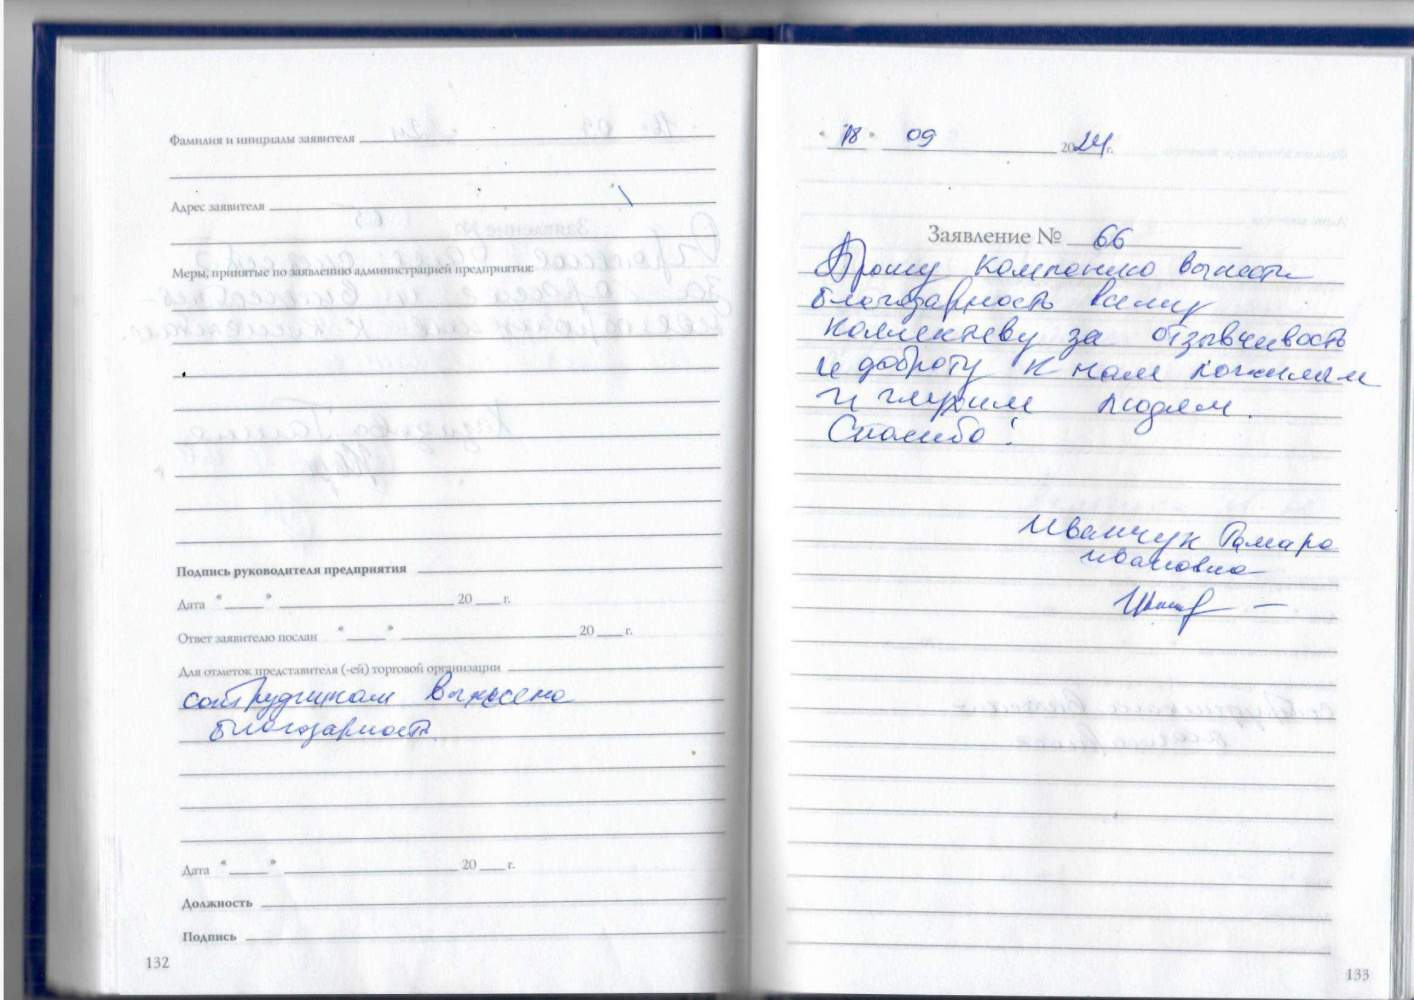 Фамилия и инициалы заявителя
Адрес заявителя
Меры, принятые по заявлению администрацией предприятия:
Подпись руководителя предприятия
Дата " " 20 г.
Ответ заявителю послан " " 20 г.
Для отметок представителя (-ей) торговой организации
сотрудникам вынесена
благодарность.
Дата " " 20 г.
Должность
Подпись
132
" 18 " 09 2024г.
Заявление № 66
Прошу компанию вынести
благодарность всему
коллективу за отзывчивость
и доброту к нам пожилым
и глухим людям.
Спасибо!
Иванчук Тамара
Ивановна
133